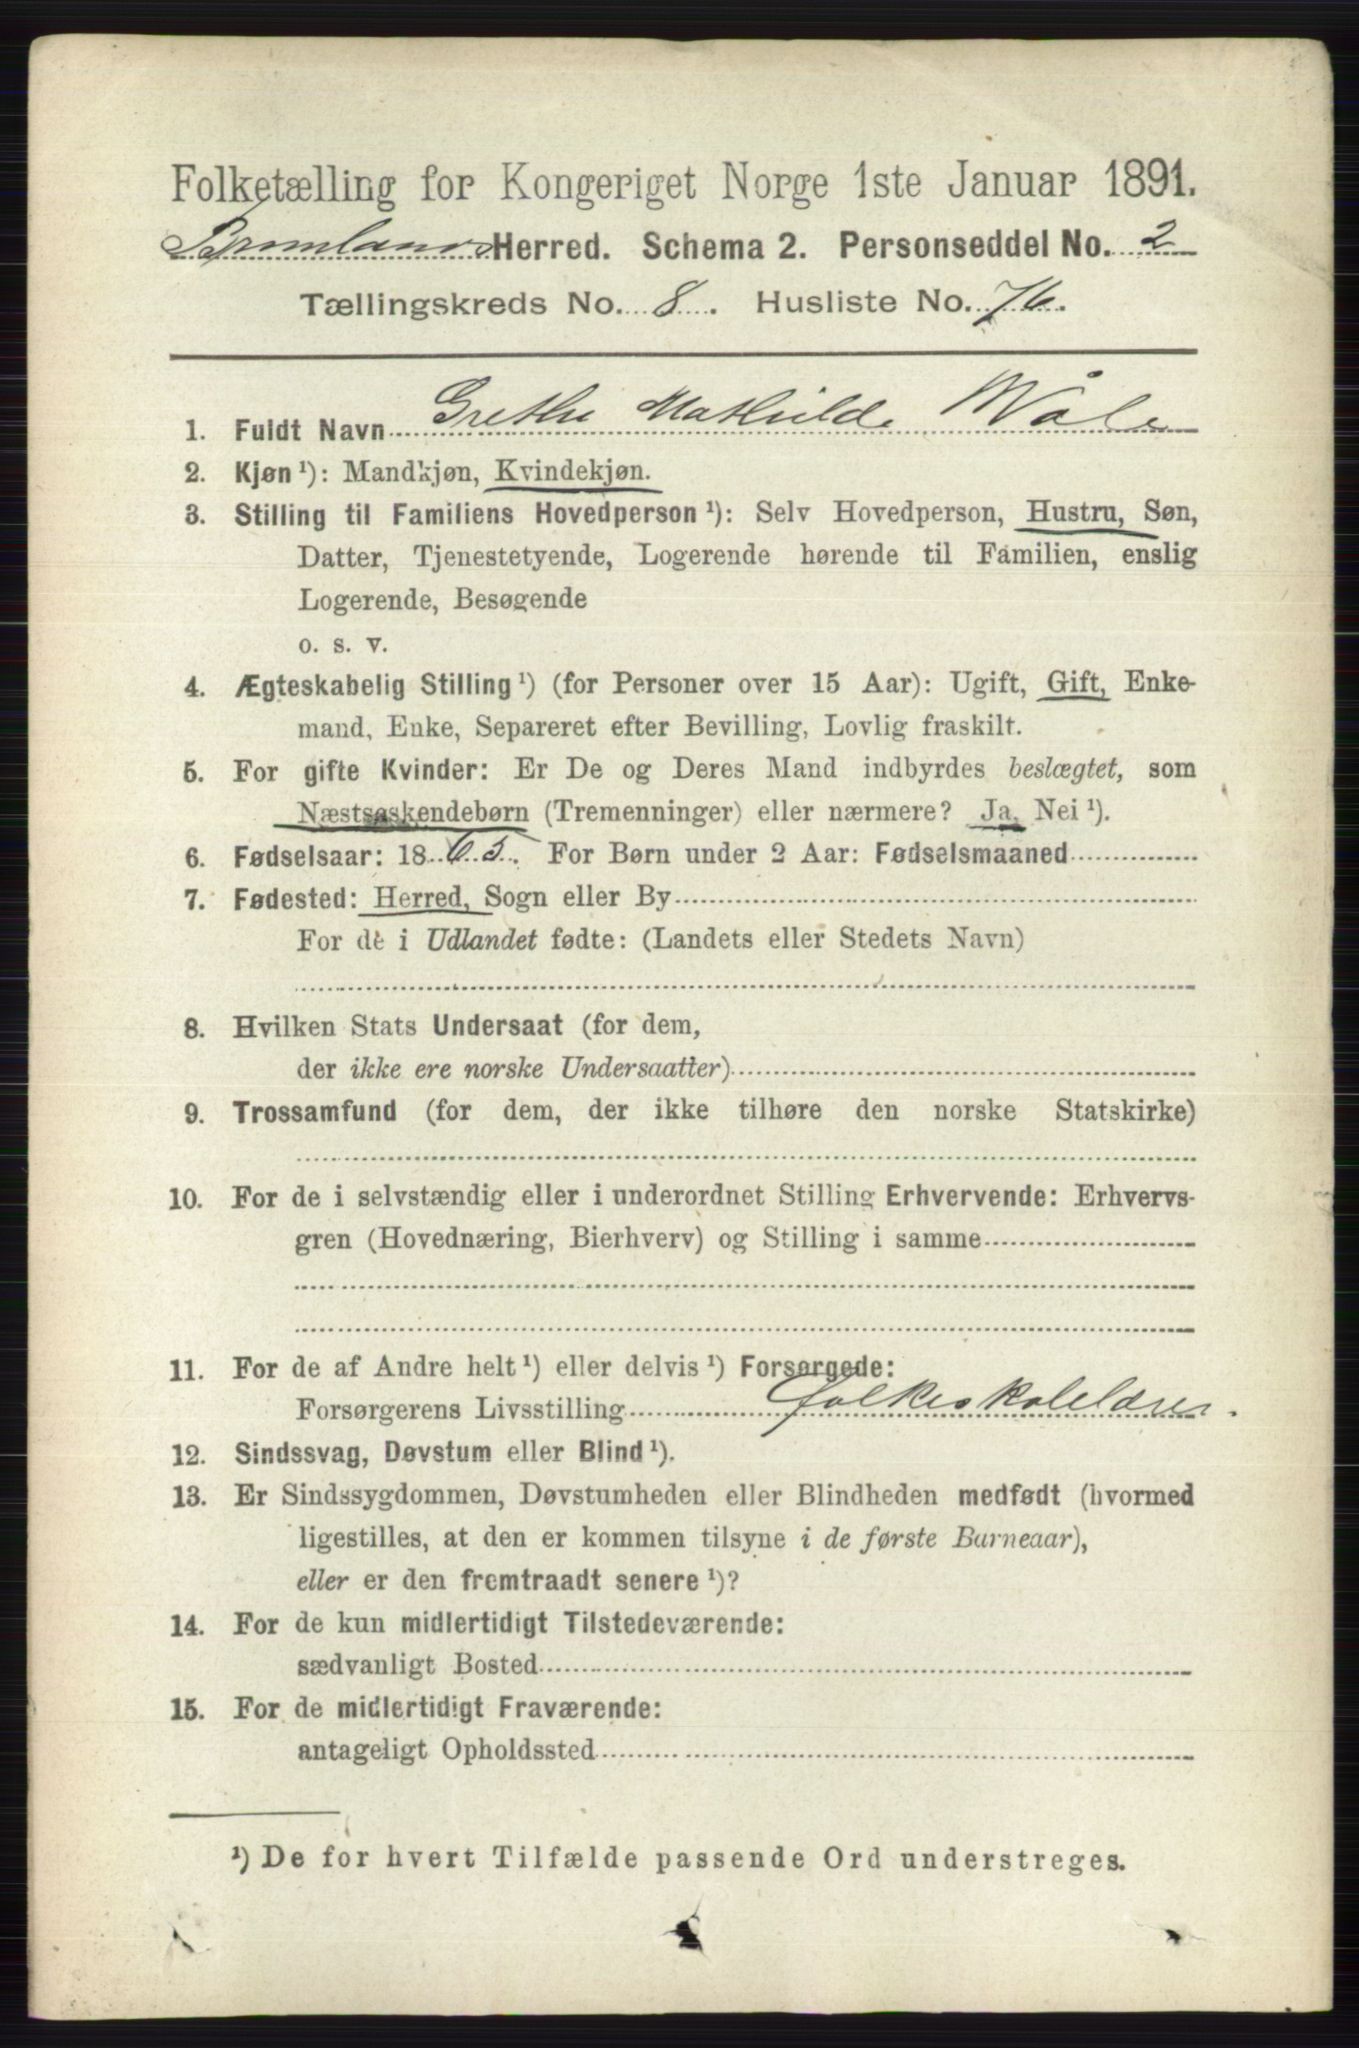 Folketælling for Kongeriget Norge 1ste Januar 1891.
Brunlanes Herred. Schema 2. Personseddel No. 2
Tællingskreds No. 8. Husliste No. 76.
1. Fuldt Navn Grethe Mathilde Wåle
2. Kjøn ¹): Mandkjøn, Kvindekjøn.
3. Stilling til Familiens Hovedperson ¹): Selv Hovedperson, Hustru, Søn,
Datter, Tjenestetyende, Logerende hørende til Familien, enslig
Logerende, Besøgende
o. s. v.
4. Ægteskabelig Stilling ¹) (for Personer over 15 Aar): Ugift, Gift, Enke-
mand, Enke, Separeret efter Bevilling, Lovlig fraskilt.
5. For gifte Kvinder: Er De og Deres Mand indbyrdes beslægtet, som
Næstsøskendebørn (Tremenninger) eller nærmere? Ja, Nei ¹).
6. Fødselsaar: 1865. For Børn under 2 Aar: Fødselsmaaned
7. Fødested: Herred, Sogn eller By
For de i Udlandet fødte: (Landets eller Stedets Navn)
8. Hvilken Stats Undersaat (for dem,
der ikke ere norske Undersaatter)
9. Trossamfund (for dem, der ikke tilhøre den norske Statskirke)
10. For de i selvstændig eller i underordnet Stilling Erhvervende: Erhvervs-
gren (Hovednæring, Bierhverv) og Stilling i samme
11. For de af Andre helt ¹) eller delvis ¹) Forsørgede:
Forsørgerens Livsstilling folkeskolelærer.
12. Sindssvag, Døvstum eller Blind ¹).
13. Er Sindssygdommen, Døvstumheden eller Blindheden medfødt (hvormed
ligestilles, at den er kommen tilsyne i de første Barneaar),
eller er den fremtraadt senere ¹)?
14. For de kun midlertidigt Tilstedeværende:
sædvanligt Bosted
15. For de midlertidigt Fraværende:
antageligt Opholdssted
¹) De for hvert Tilfælde passende Ord understreges.